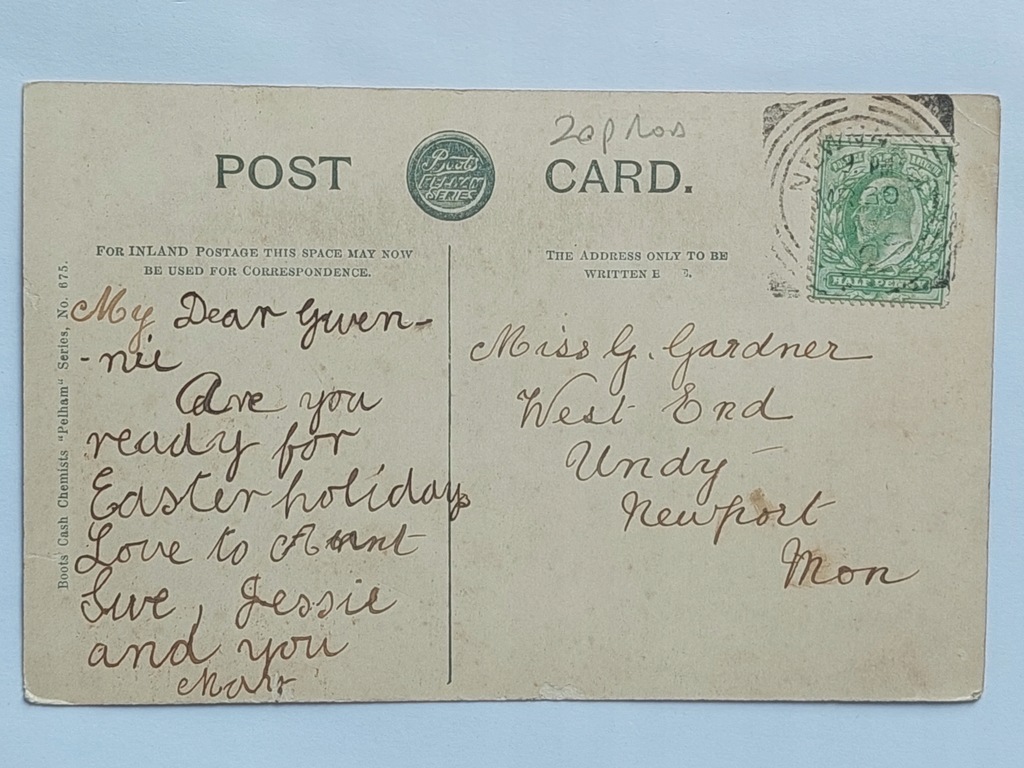 POST CARD.
Boots
PELHAM
SERIES
FOR INLAND POSTAGE THIS SPACE MAY NOW
BE USED FOR CORRESPONDENCE.
THE ADDRESS ONLY TO BE
WRITTEN
Boots Cash Chemists "Pelham" Series, No. 675.
HALF PENNY
My Dear Gwen-
-nie
Are you
ready for
Easter holidays
Love to Aunt
Sue, Jessie
and you
Miss G. Gardner
West End
Undy
Newport
Mon